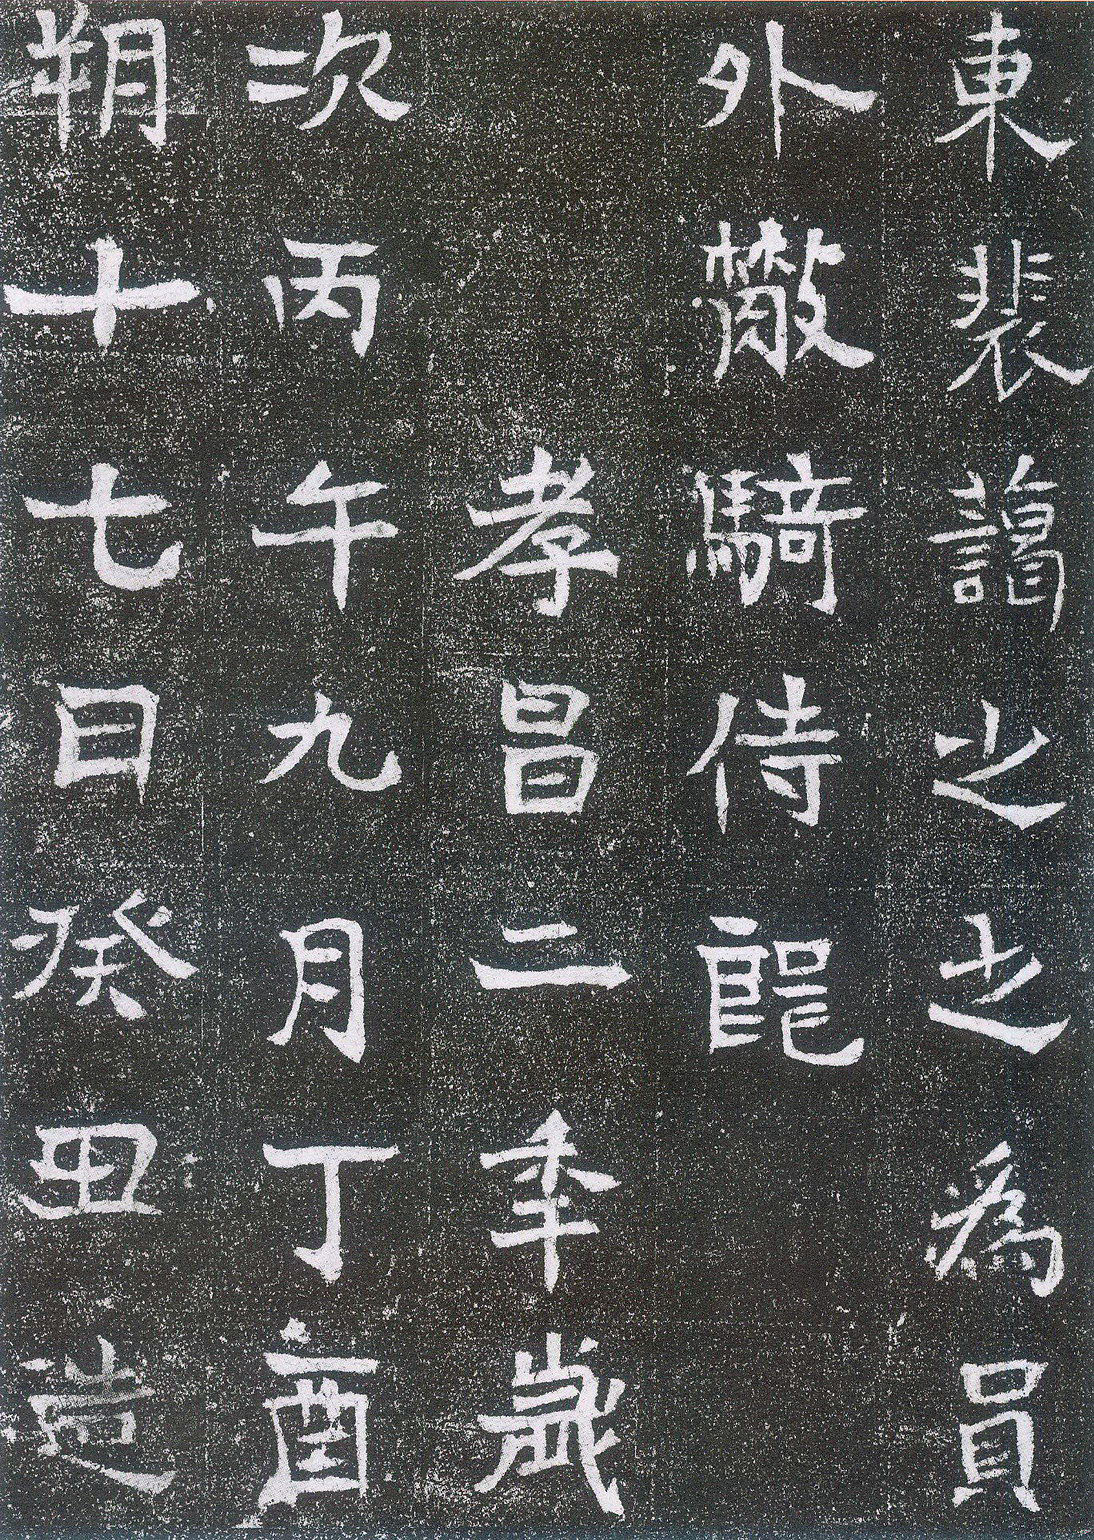 東裴藹之之爲員
外散騎侍郎
孝昌二年歲
次丙午九月丁酉
朔十七日癸丑造